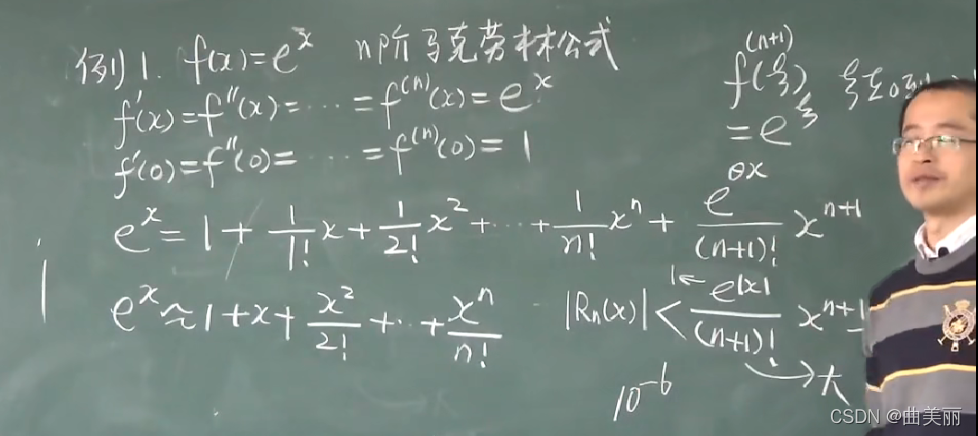 例1. f(x)=e^x n阶马克劳林公式
f'(x)=f''(x)=⋯=f^(n)(x)=e^x
f'(0)=f''(0)=⋯=f^(n)(0)=1
f^(n+1)(ξ) ξ在0到
=e^ξ
e^x=1+1/1! x+1/2! x^2+⋯+1/n! x^n+e^θx/(n+1)! x^n+1
e^x≈1+x+x^2/2!+⋯+x^n/n! |Rn(x)|<e^|x|/(n+1)! x^n+1
1←
→大
10^-6
CSDN @曲美丽